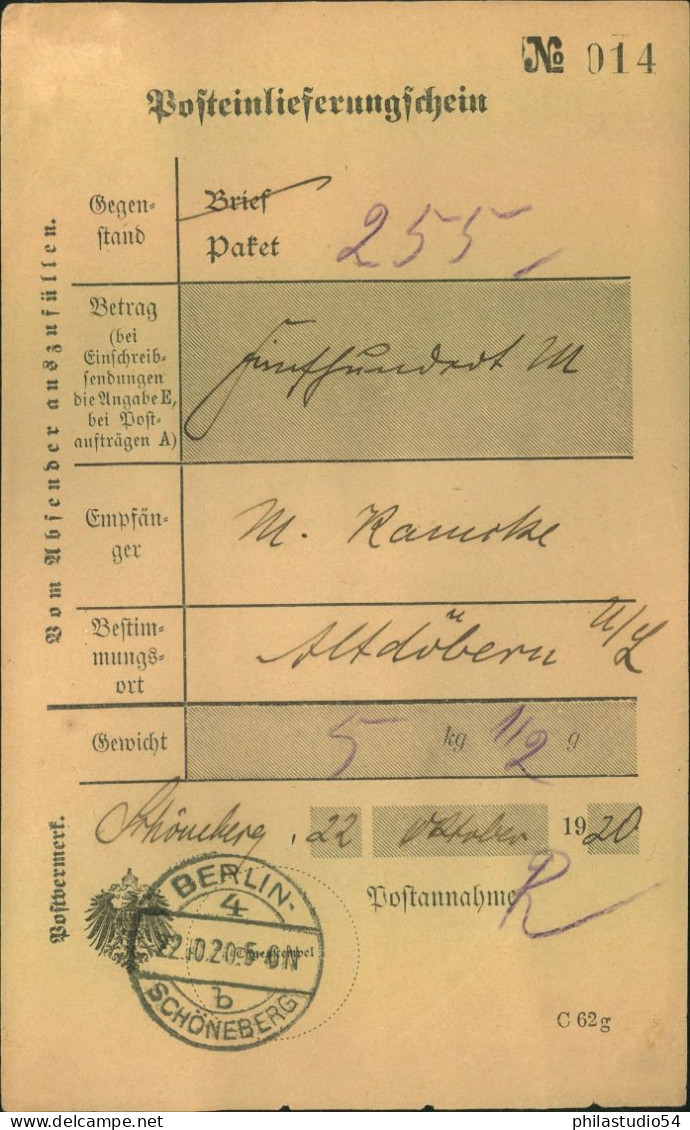 № 014
Posteinlieferungsschein
Vom Absender auszufüllen.
Gegen-
stand
Brief
Paket
255
Betrag
(bei
Einschreib-
sendungen
die Angabe E,
bei Post-
aufträgen A)
Fünfhundert M
Empfän-
ger
M. Kamcke
Bestim-
mungs-
ort
Altdöbern N/L
Gewicht
5 kg 1/2 g
Postvermerk.
Schöneberg, 22 Oktober 1920
Postannahme
BERLIN-
4
22.10.20.5-6N
b
SCHÖNEBERG
C 62g
www.delcampe.net
philastudio54